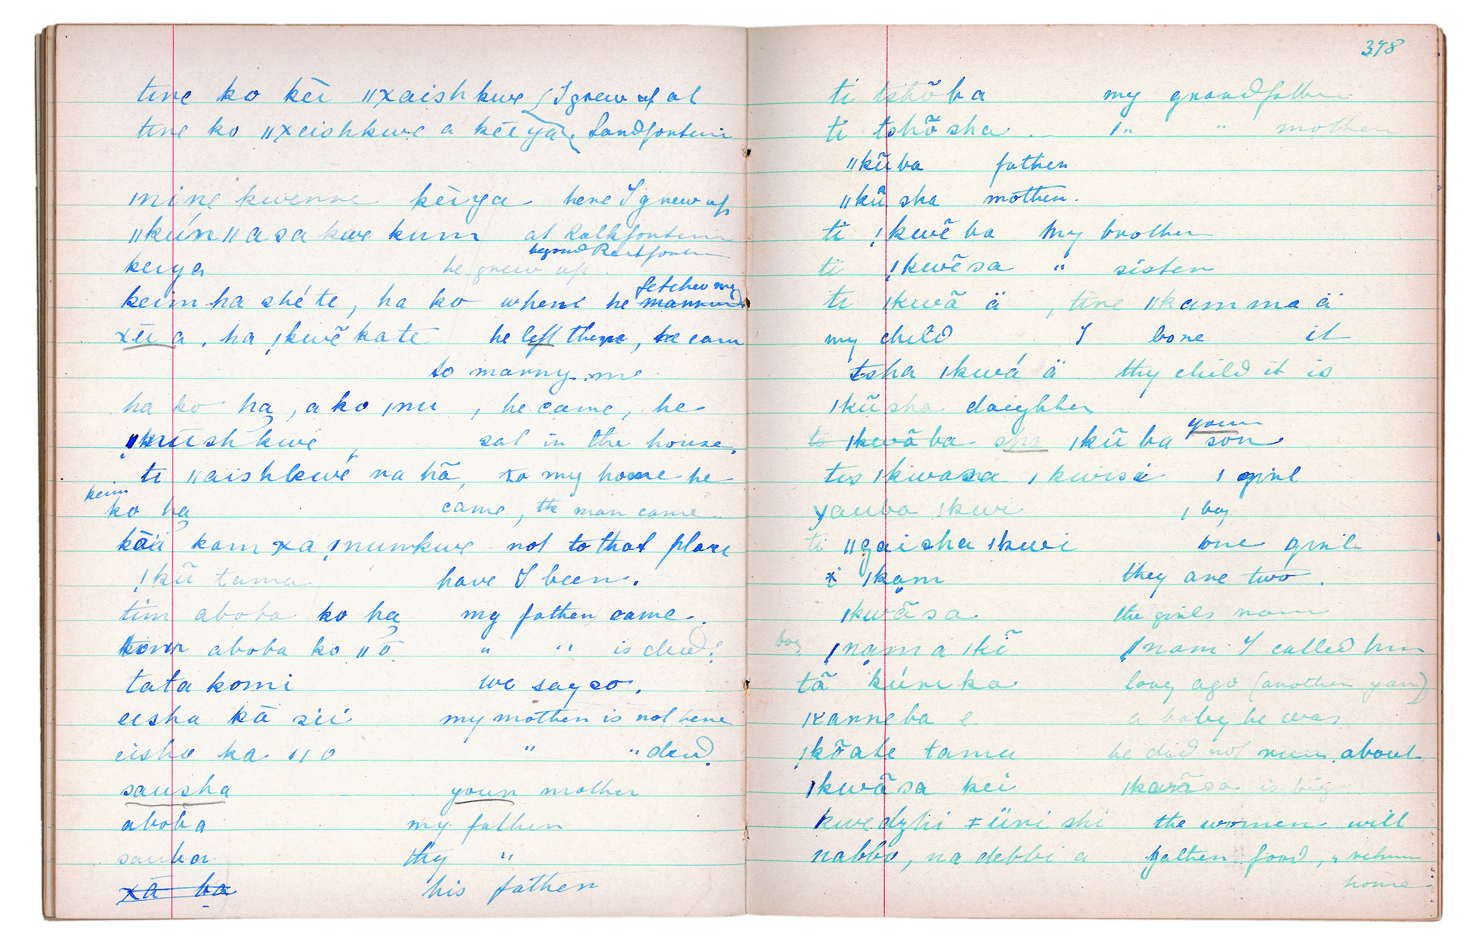 tine ko kēi ǁxaishkwe I grew up at
tine ko ǁxeishkwe a kēi ya, Sandfontein
ǀnine kwenne kēiya here I grew up
ǁkún ǁasa kwe kum at Kalkfontein
beyond Rietfontein
keiya he grew up.
fetched me
keim ha shéte, ha ko where he married
xēi a, ha ǃkwē kate he left there, he came
to marry me
ha ko ha, a ko ǀnu, he came, he
ǁkrüsh kwe sat in the house,
ti ǁaishkwe na hā, to my home he
keim
ko ha came, the man came
kāä kam xa ǃnumkwe not to that place
ǃkū tama have I been.
tim aboba ko ha my father came.
tim aboba ko ǁō " " is dead.
tata komi we say so.
eisha kā sii my mother is not here
eisha ka ǀǀo " " dead.
sausha your mother
aboba my father
sauba thy "
xā ba his father
398
ti tshōba my grandfather
ti tshōsha ǀ" " mother
ǁkūba father
ǁkūsha mother.
ti ǃkwēba my brother
ti ǃkwēsa " sister
ti ǀkwā ä, tine ǁkamma ä
my child I bore it
tsha ǀkwá ä thy child it is
ǀkūsha daughter
your
ti ǀkwāba sha ǀkūba son
tis ǀkwasa ǀkwisi 1 girl
yauba ǀkwi 1 boy
ti ǁgaisha ǀkwi one girl
ǀkam they are two.
ǀkwāsa the girls nam
boy ǀnama ǀkī ǀnam I called him
tā kúruka long ago (another year)
ǀkanneba e a baby he was
ǃkōate tama he did not run about
ǀkwāsa kei ǀkwāsa is big
kwedzhi ǂüni shi the women will
nabbe, na debbi a gather food, " return
home